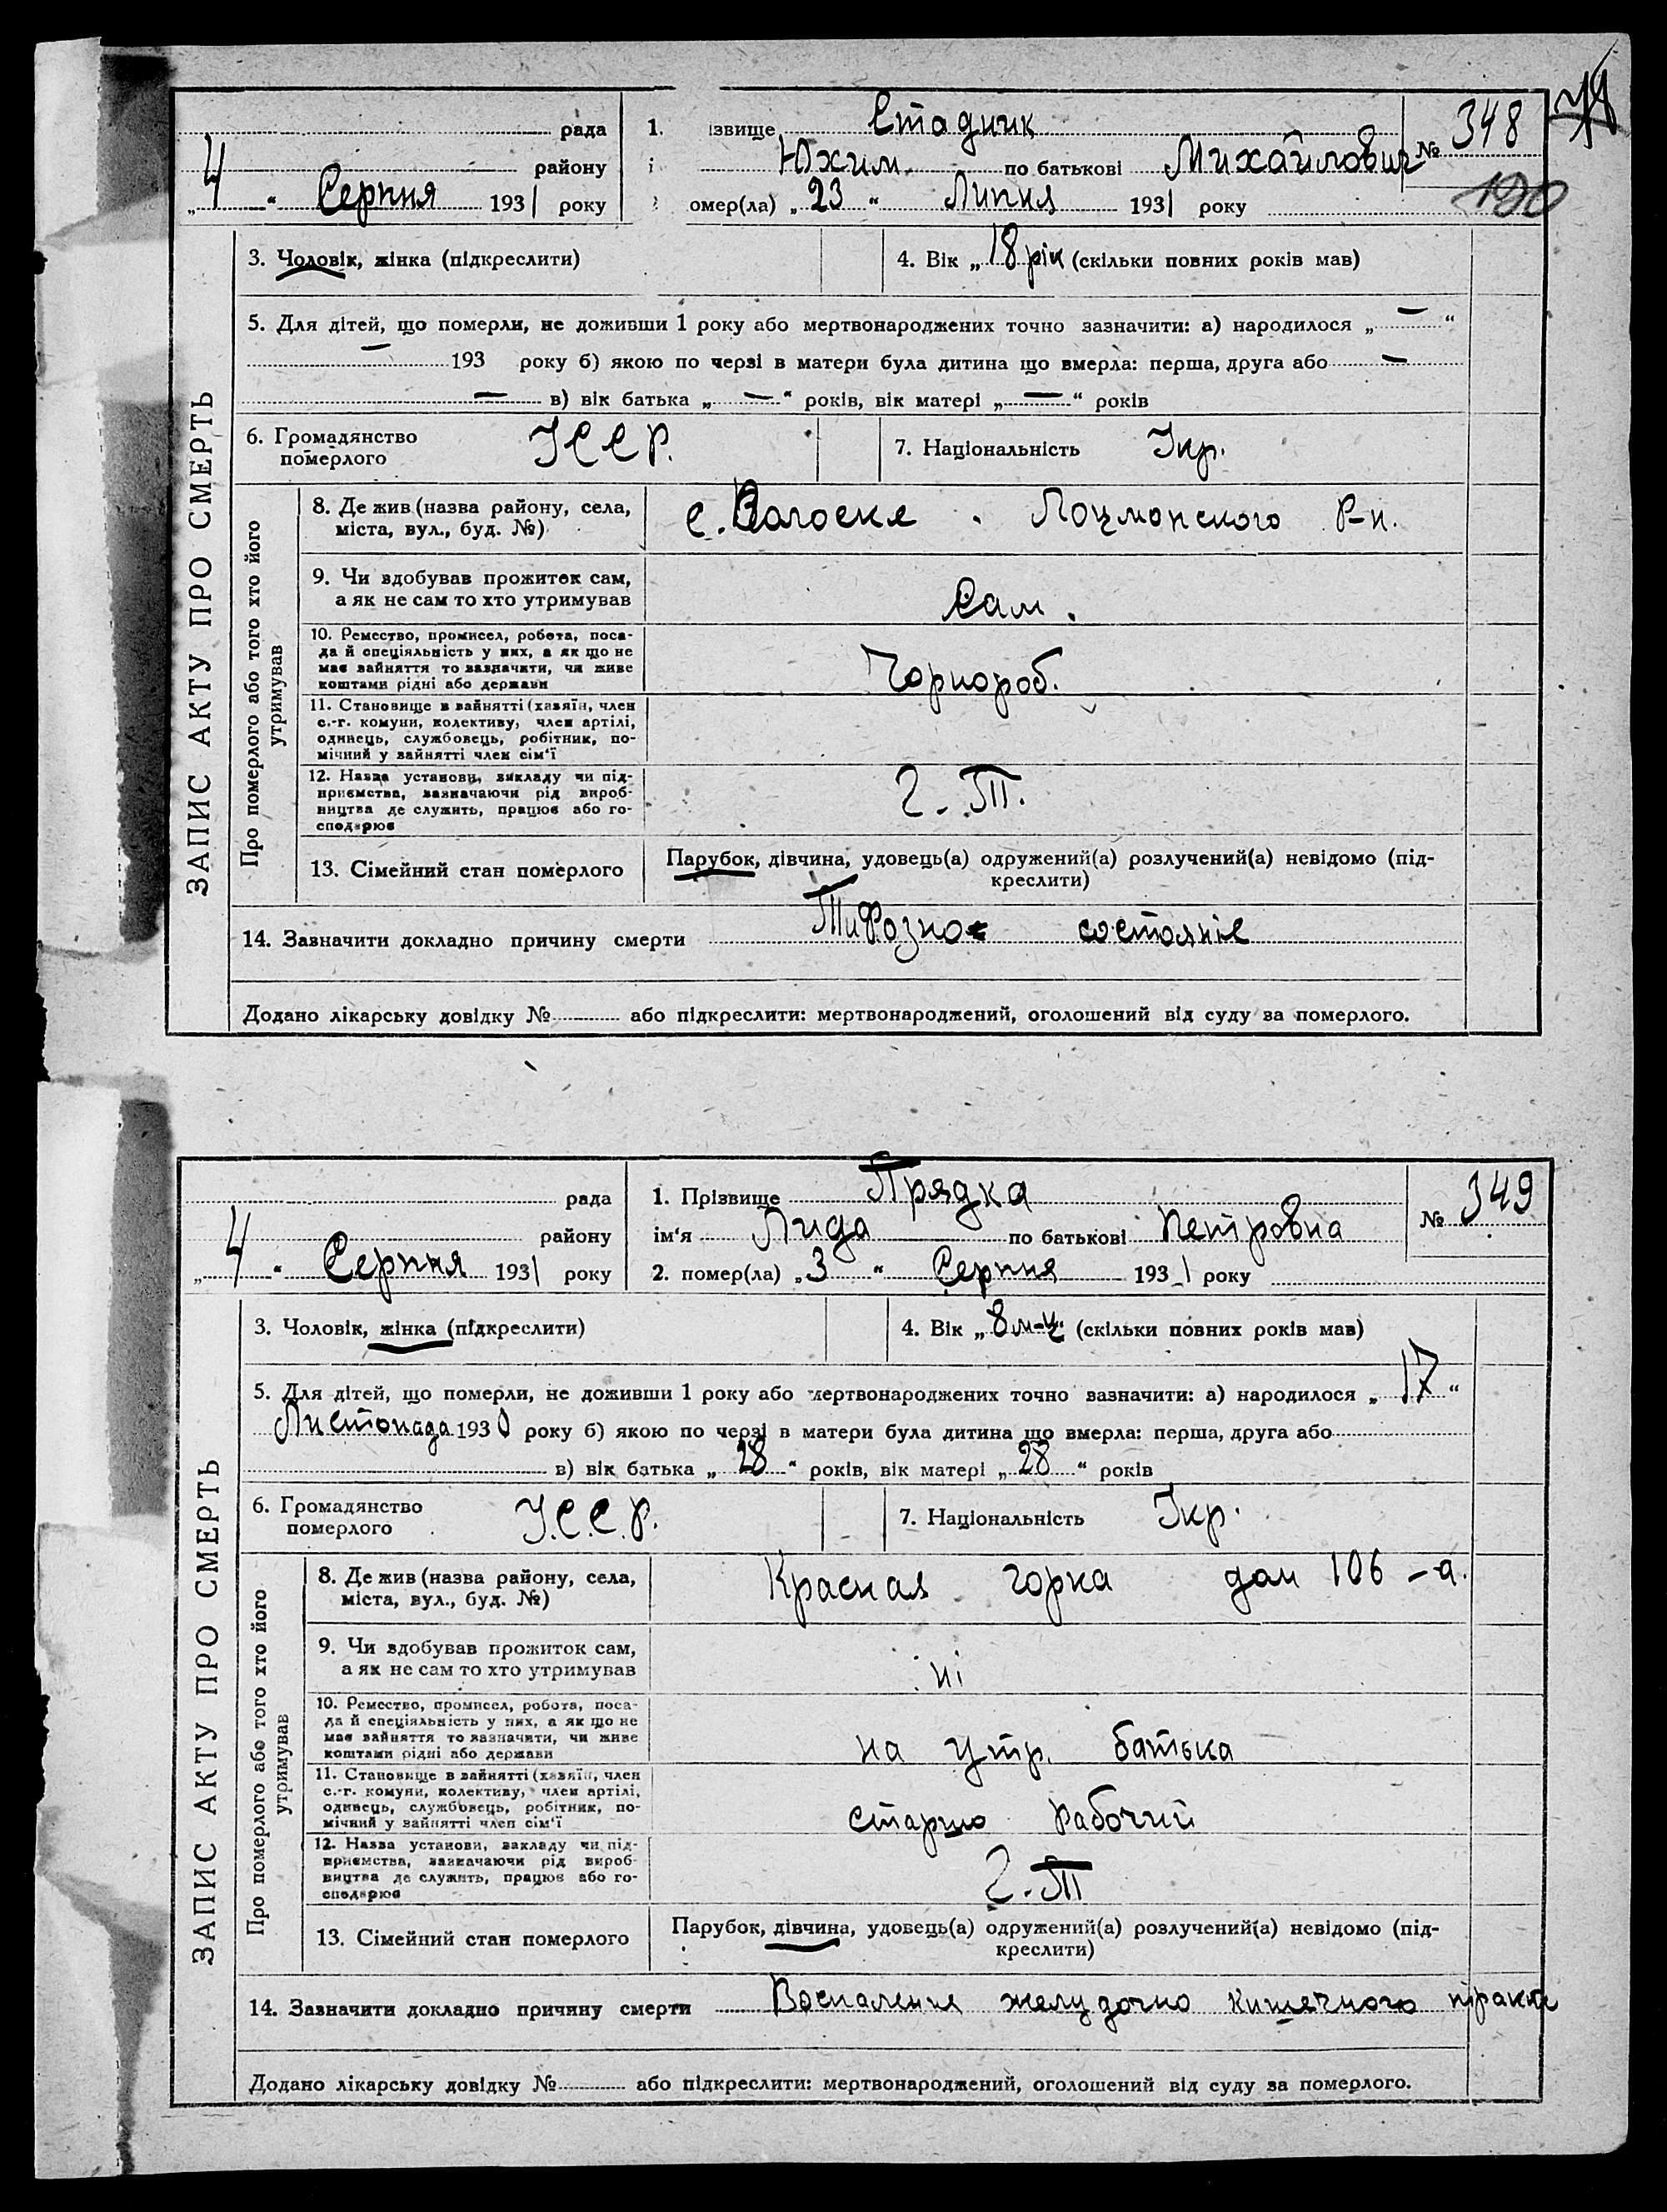 рада
району
„ 4 “ Серпня 1931 року
1. ізвище Стадник
Юхим по батькові Михайлович
омер(ла) „ 23 “ Липня 1931 року
№ 348
190
ЗАПИС АКТУ ПРО СМЕРТЬ
3. Чоловік, жінка (підкреслити)
4. Вік „ 18 рік (скільки повних років мав)
5. Для дітей, що померли, не доживши 1 року або мертвонароджених точно зазначити: а) народилося „ — “
— 193 року б) якою по черзі в матери була дитина що вмерла: перша, друга або —
— в) вік батька „ — “ років, вік матері „ — “ років
6. Громадянство
померлого
УССР.
7. Національність Укр.
Про померлого або того хто його
утримував
8. Де жив (назва району, села,
міста, вул., буд. №)
с. Волоске . Лоцманского Р-н.
9. Чи вдобував прожиток сам,
а як не сам то хто утримував
Сам.
10. Ремество, промисел, робота, поса-
да й спеціяльність у них, а як що не
має зайняття то зазначити, чи живе
коштами рідні або держави
Чорнороб.
11. Становище в зайнятті (хазяїн, член
с.-г. комуни, колективу, член артілі,
одинець, службовець, робітник, по-
мічний у зайнятті член сім'ї
12. Назва установи, викладу чи під-
приємства, зазначаючи рід вироб-
ництва де служить, працює або го-
сподарює
2.-ТП.
13. Сімейний стан померлого
Парубок, дівчина, удовець(а) одружений(а) розлучений(а) невідомо (під-
креслити)
14. Зазначити докладно причину смерти Тифозное состояніе
Додано лікарську довідку № або підкреслити: мертвонароджений, оголошений від суду за померлого.
рада
району
„ 4 “ Серпня 1931 року
1. Прізвище Прядка
ім'я Лида по батькові Петровна
2. помер(ла) „ 3 “ Серпня 1931 року
№ 349
ЗАПИС АКТУ ПРО СМЕРТЬ
3. Чоловік, жінка (підкреслити)
4. Вік „ 8 м-ц. (скільки повних років мав)
5. Для дітей, що померли, не доживши 1 року або мертвонароджених точно зазначити: а) народилося „ 17 “
Листопада 1930 року б) якою по черзі в матери була дитина що вмерла: перша, друга або
в) вік батька „ 28 “ років, вік матері „ 28 “ років
6. Громадянство
померлого
У.С.С.Р.
7. Національність Укр.
Про померлого або того хто його
утримував
8. Де жив (назва району, села,
міста, вул., буд. №)
Красная горка дом 106 – а.
9. Чи вдобував прожиток сам,
а як не сам то хто утримував
ні
10. Ремество, промисел, робота, поса-
да й спеціяльність у них, а як що не
має зайняття то зазначити, чи живе
коштами рідні або держави
на утр. батька
11. Становище в зайнятті (хазяїн, член
с.-г. комуни, колективу, член артілі,
одинець, службовець, робітник, по-
мічний у зайнятті член сім'ї
рабочий
12. Назва установи, закладу чи під-
приємства, зазначаючи рід вироб-
ництва де служить, працює або го-
сподарює
2.-ТП
13. Сімейний стан померлого
Парубок, дівчина, удовець(а) одружений(а) розлучений(а) невідомо (під-
креслити)
14. Зазначити докладно причину смерти Воспаления желудочно кишечного тракта
Додано лікарську довідку № або підкреслити: мертвонароджений, оголошений від суду за померлого.